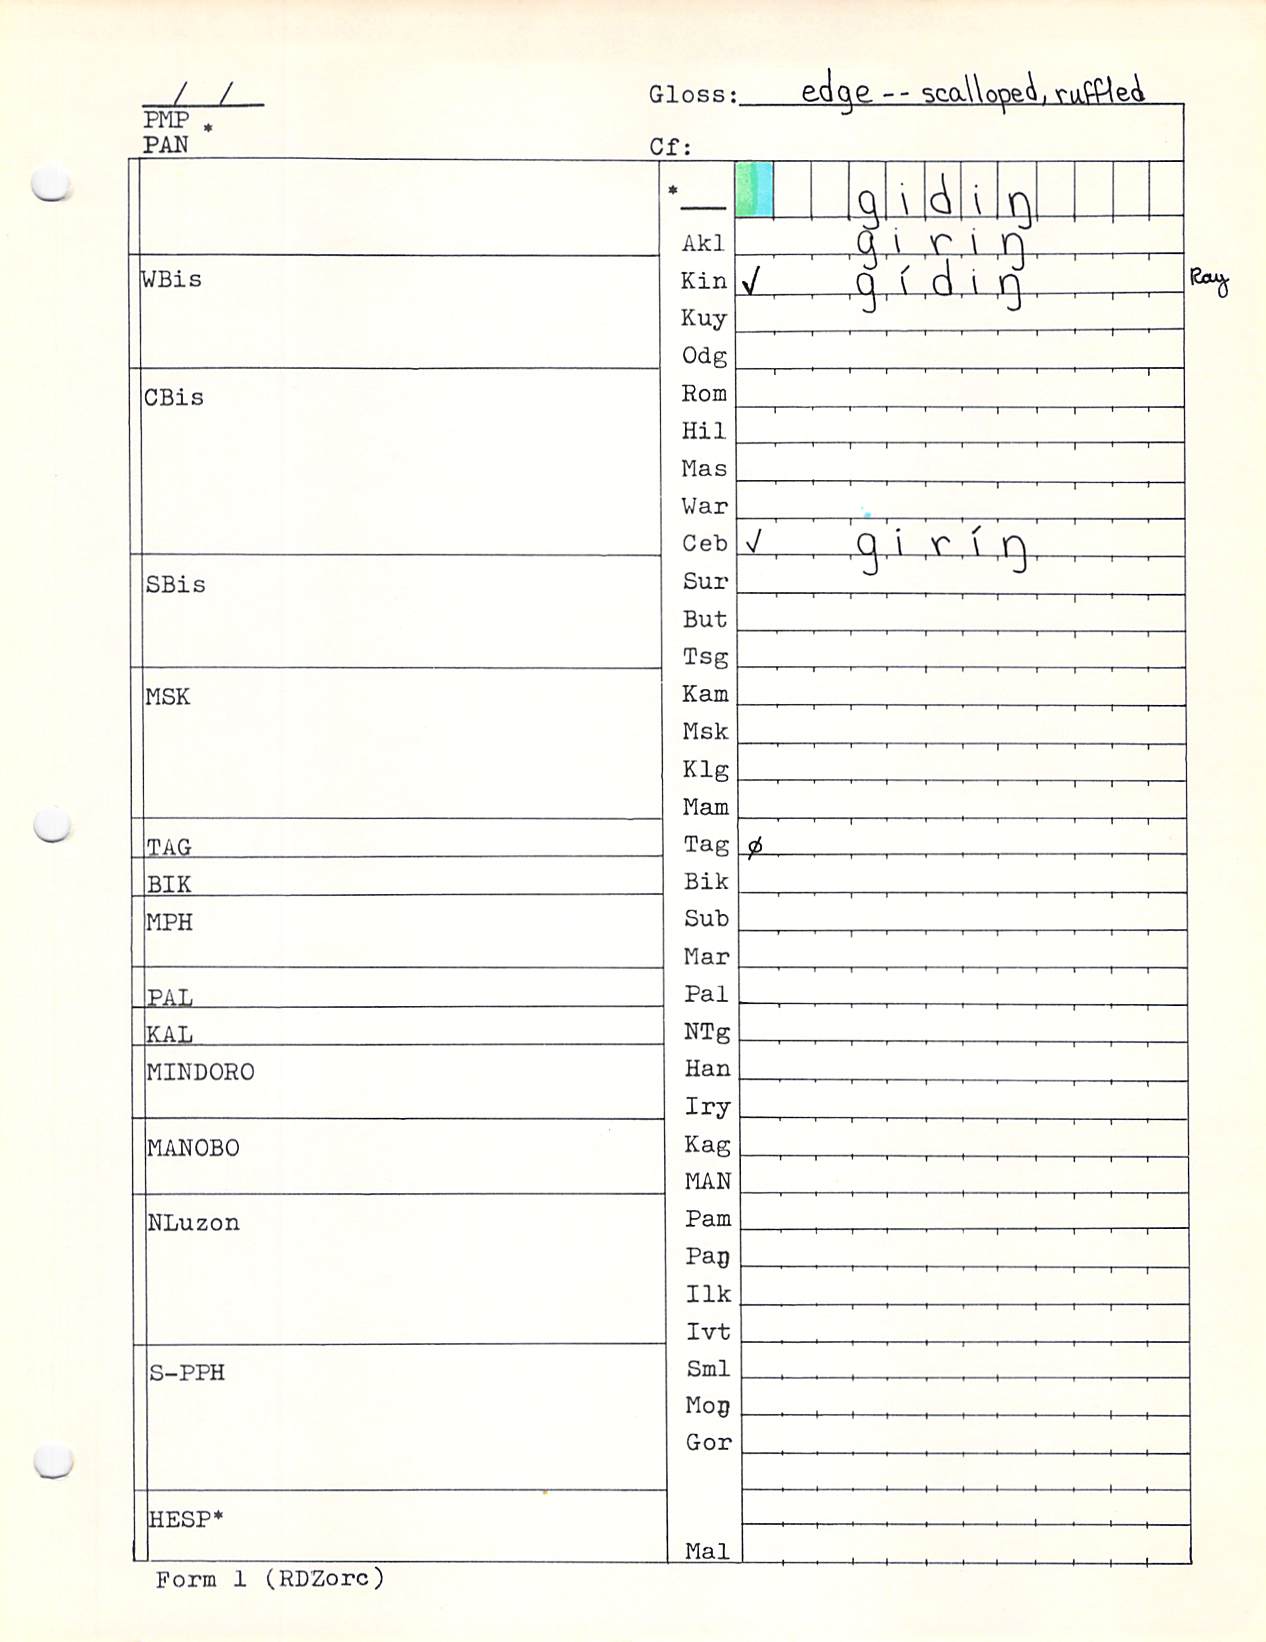 / /
Gloss: edge -- scalloped, ruffled
PMP
PAN *
Cf:
* gidiŋ
Akl giriŋ
WBis
Kin ✓ gídiŋ Ray
Kuy
Odg
CBis
Rom
Hil
Mas
War
Ceb ✓ giríŋ
SBis
Sur
But
Tsg
MSK
Kam
Msk
Klg
Mam
TAG
Tag ∅
BIK
Bik
MPH
Sub
Mar
PAL
Pal
KAL
NTg
MINDORO
Han
Iry
MANOBO
Kag
MAN
NLuzon
Pam
Paŋ
Ilk
Ivt
S-PPH
Sml
Moŋ
Gor
HESP*
Mal
Form 1 (RDZorc)